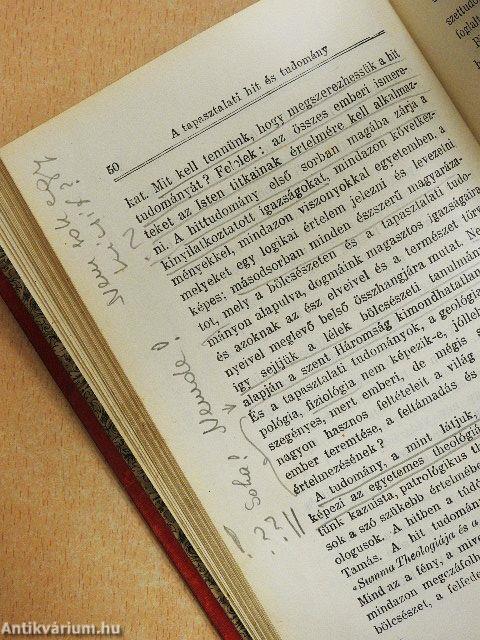 50
A tapasztalati hit és tudomány
kat. Mit kell tennünk, hogy megszerezhessük a hit
tudományát? Felelek: az összes emberi ismere-
teket az Isten titkainak értelmére kell alkalmaz-
ni. A hittudomány első sorban magába zárja a
kinyilatkoztatott igazságokat, mindazon következ-
ményekkel, mindazon viszonyokkal egyetemben, a
melyeket egy logikai értelem jelezni és levezetni
képes; másodsorban minden észszerű magyaráza-
tot, mely a bölcsészeten és a tapasztalati tudo-
mányon alapulva, dogmáink magasztos igazságaira
és azoknak az ész elveivel és a természet törvé-
nyeivel meglevő belső összhangjára mutat. Ne
így sejtjük a lélek bölcsészeti tanulmán
alapján a szent Háromság kimondhatatlan
És a tapasztalati tudományok, a geológia
pológia, fiziológia nem képezik-e, jólle
szegényes, mert emberi, de mégis s
nagyon hasznos feltételeit a világ
ember teremtése, a feltámadás és
értelmezésének?
A tudomány, a mint látjuk,
képezi az egyetemes theológiá
tünk kazuista, patrológikus
sok a szó szűkebb értelmébe
ologusok. A hitben a tudo
Tamás. A hit tudomány
«Summa Theologiája és a
Mind az a fény, a mive
mindazon megczáfolh
bölcsészet, a felfede
szettudo
foglalt
Nem sok egy
Nemde!
Soha!
??
Antikvárium.hu